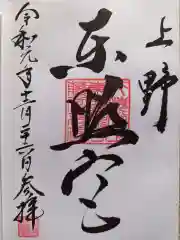 上野
东照宮
令和元年十二月二十二日参拝